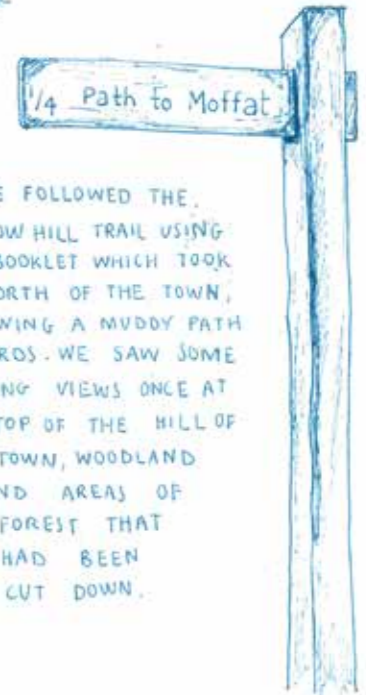 1/4 Path to Moffat
FOLLOWED THE
HILL TRAIL USING
BOOKLET WHICH TOOK
OF THE TOWN,
A MUDDY PATH
. WE SAW SOME
VIEWS ONCE AT
TOP OF THE HILL OF
TOWN, WOODLAND
AREAS OF
FOREST THAT
HAD BEEN
CUT DOWN.